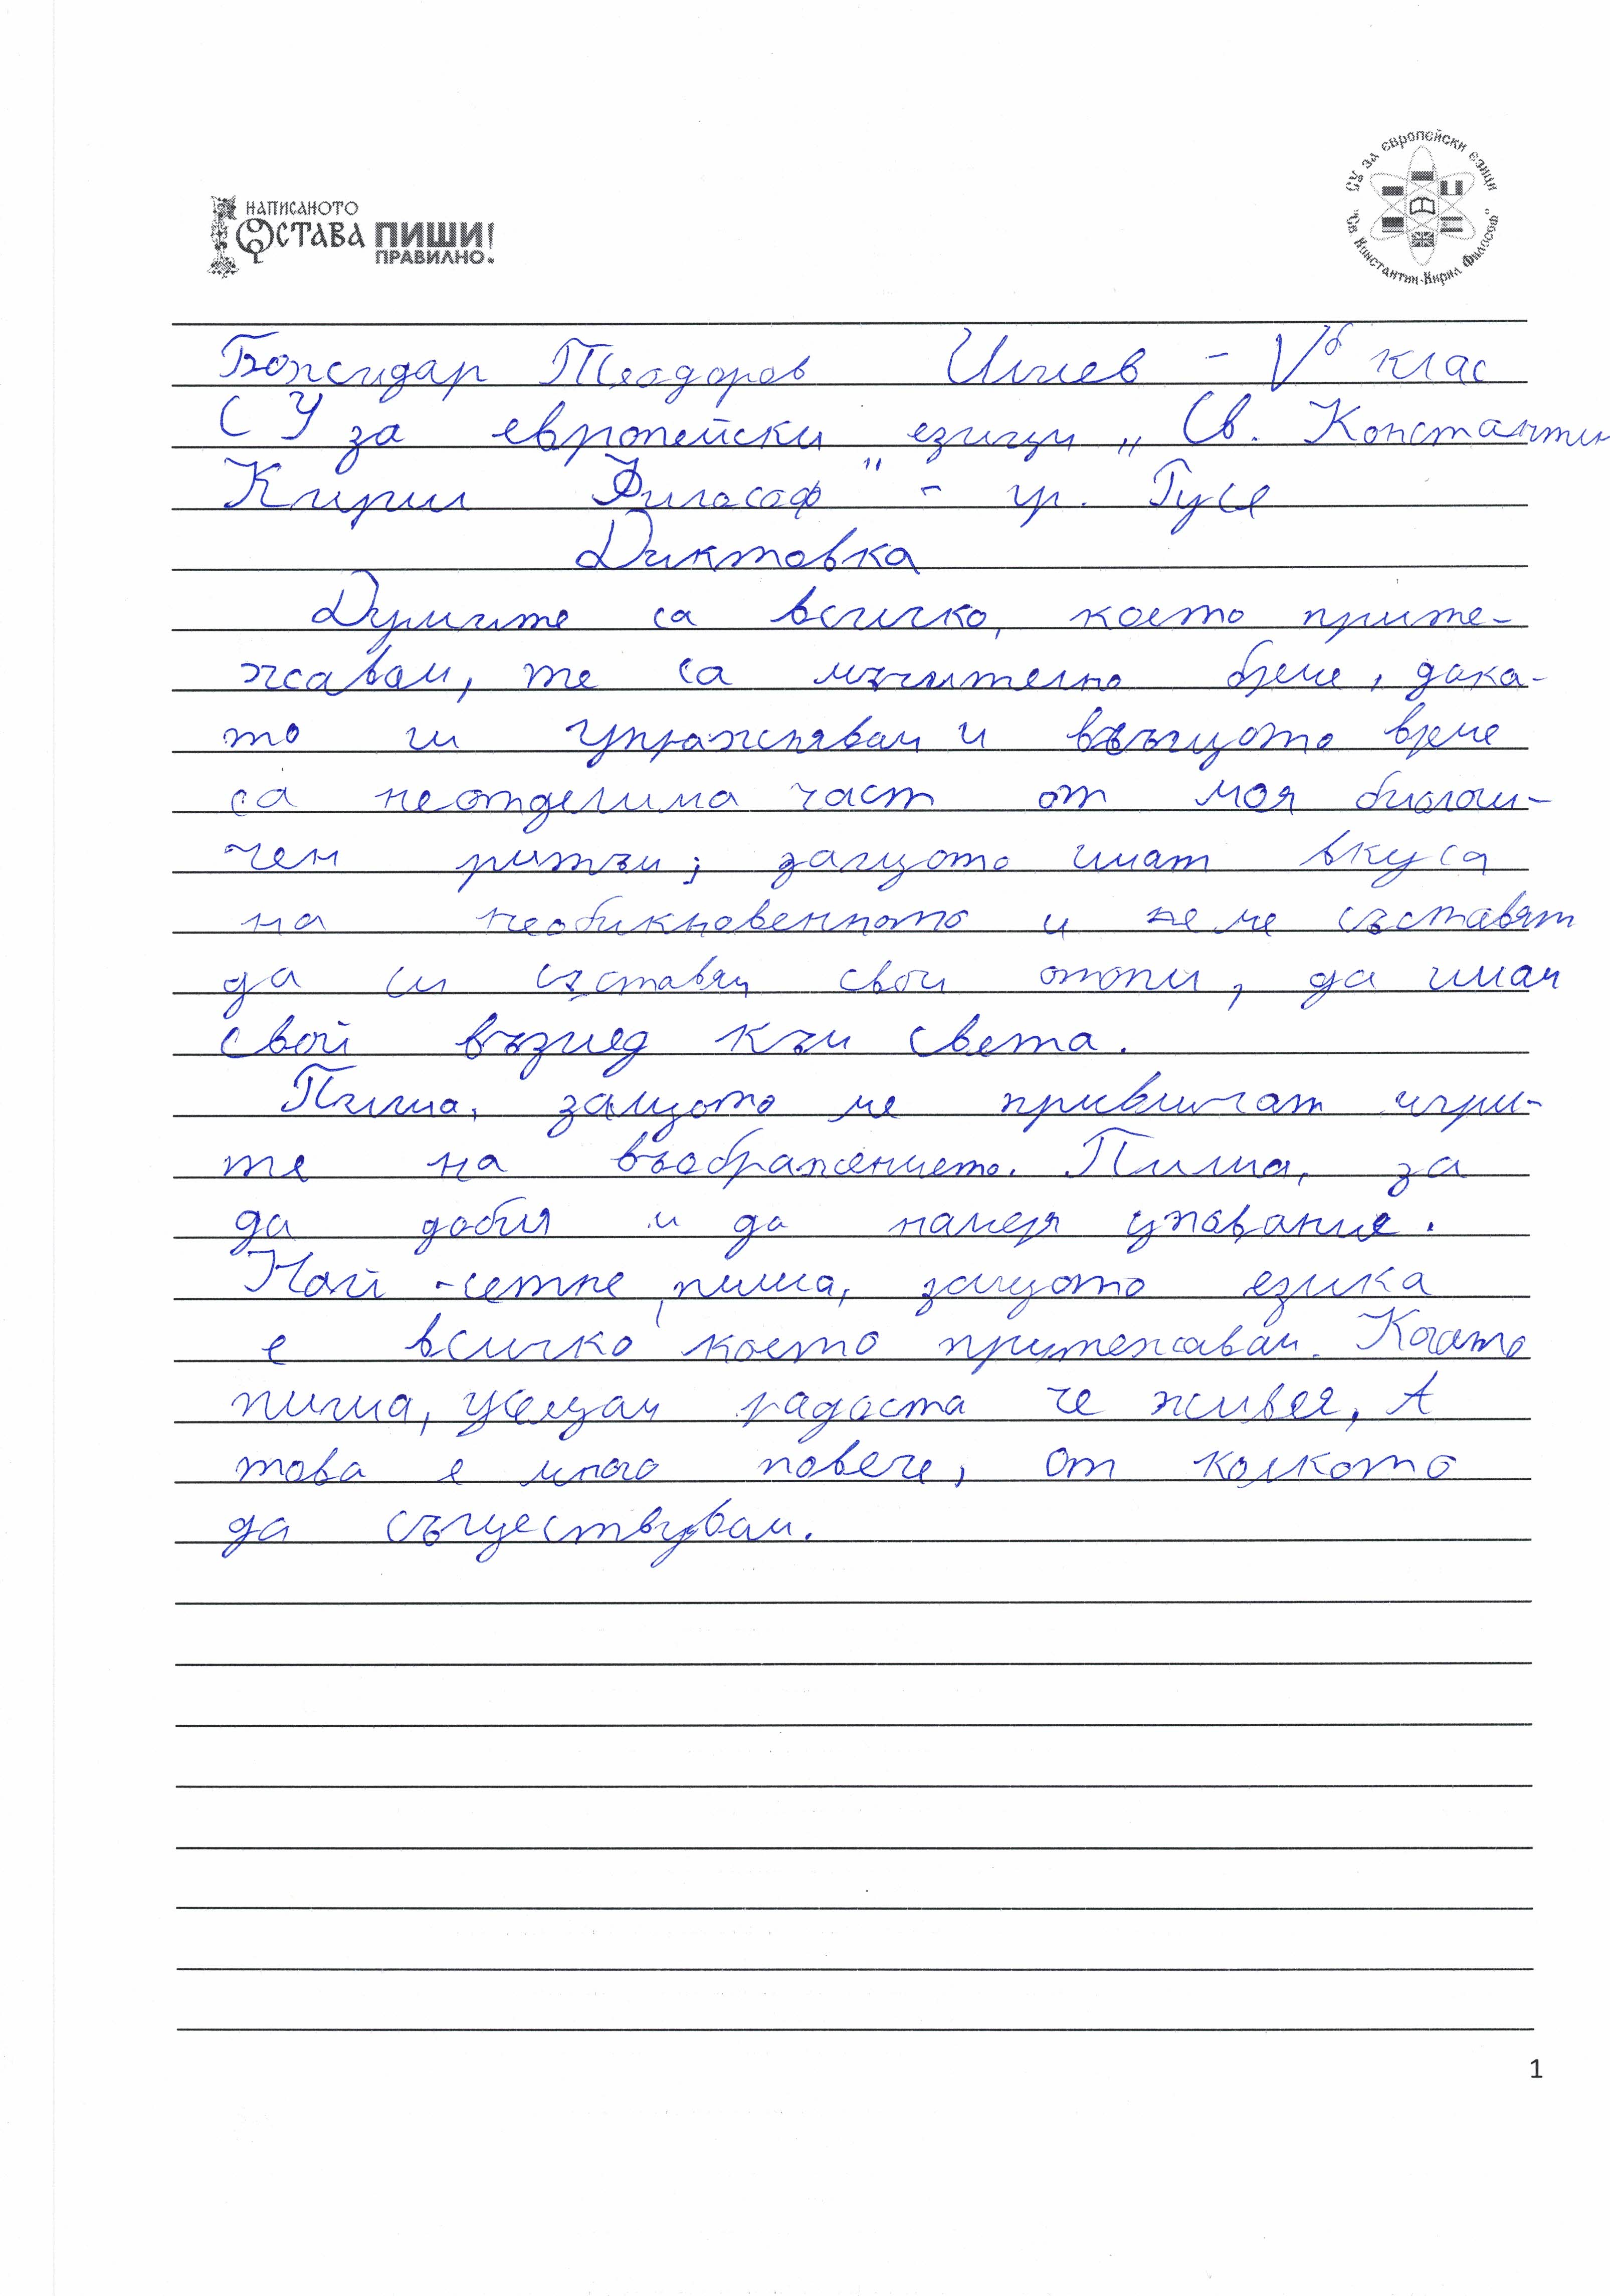 НАПИСАНОТО
ОСТАВА ПИШИ!
ПРАВИЛНО.
СУ за европейски езици
"Св. Константин-Кирил Философ"
Божидар Теодоров Илиев - Vб клас
СУ за европейски езици „Св. Константин
Кирил Философ" - гр. Русе
Диктовка
Думите са всичко, което прите-
жавам, те са мъчително бреме, дока-
то ги упражнявам и въвъщото време
са неотделима част от моя биологи-
чен ритъм; защото имат вкуса
на необикновенното и не ме съставят
да си съставям свои опопи, да имам
свой възглед към света.
Пиша, защото ме привличат игри-
те на въображението. Пиша, за
да добия и да намеря упование.
Най-сетне, пиша, защото езика
е всичко което притежавам. Когато
пиша, усещам радоста че живея, А
това е много повече, от колкото
да съществувам.
1